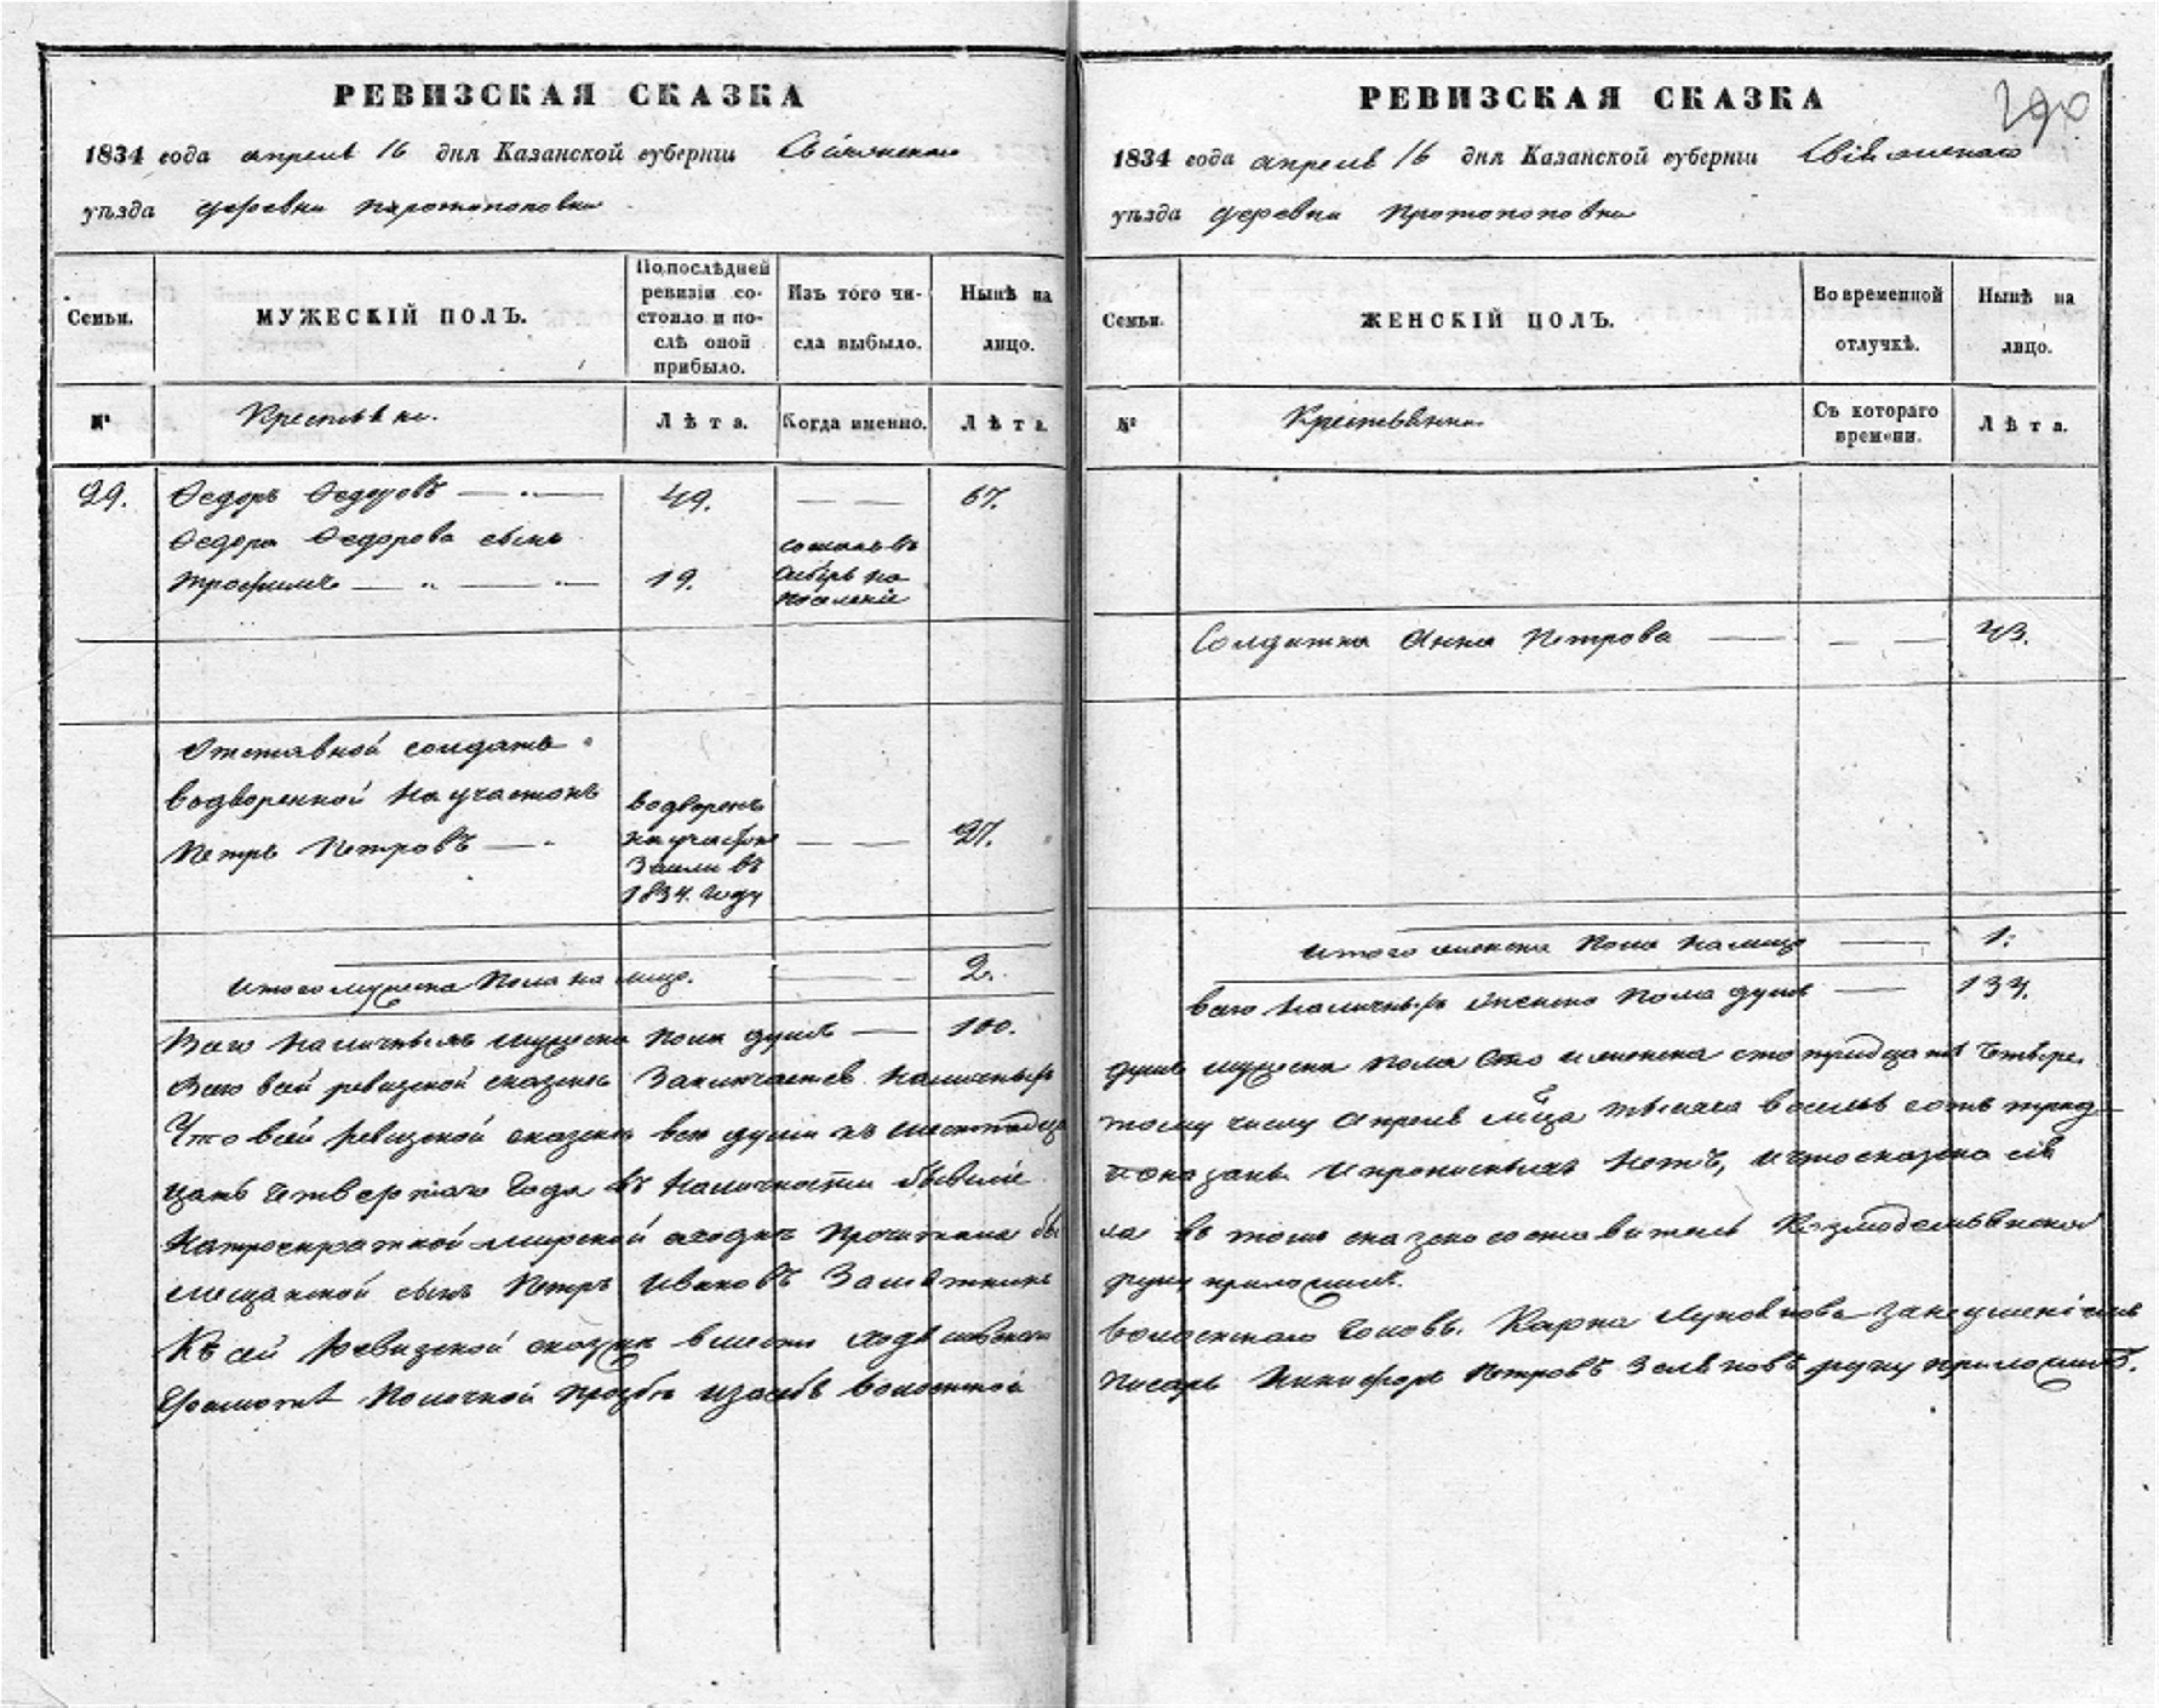 РЕВИЗСКАЯ СКАЗКА
1834 года апреля 16 дня Казанской губерніи Свіяжскаго
уѣзда деревни Протопоповки
Семьи.
МУЖЕСКІЙ ПОЛЪ.
По послѣдней
ревизіи со-
стояло и по-
слѣ оной
прибыло.
Изъ того чи-
сла выбыло.
Нынѣ на
лицо.
№
Крестьяне.
Лѣта.
Когда именно.
Лѣта.
29. Ѳедоръ Ѳедоровъ 49. — — 67.
Ѳедора Ѳедорова сынъ
Трофимъ 19.
сосланъ въ
Сибирь на
поселеніе
Отставной солдатъ
водворенной на участокъ
Петръ Петровъ
водворенъ
на участокъ
земли въ
1834. году
— — 27.
Итого мужеска пола на лицо. 2.
Всего наличныхъ мужеска пола душъ — 100.
Всего в сей ревизской сказке заключается наличныхъ
Что в сей ревизской сказке все души къ шестнадца
цать четвертаго года въ наличности бывшіе
мирской сходке прочитана бы
мещанской сынъ Петръ Ивановъ
Къ сей ревизской сказке вместо
грамоте по личной прозбе волостной
290
РЕВИЗСКАЯ СКАЗКА
1834 года апреля 16 дня Казанской губерніи Свіяжскаго
уѣзда деревни Протопоповки
Семьи.
ЖЕНСКІЙ ПОЛЪ.
Во временной
отлучкѣ.
Нынѣ на
лицо.
№
Крестьянки
Съ котораго
времени.
Лѣта.
Солдатка Анна Петрова — — — 43.
Итого женска пола на лицо — 1.
Всего наличныхъ женска пола душъ — 134.
душъ мужеска пола сто и женска сто тридцать четыре.
тому числу апреля мца тысяча восемь сотъ трид
показаны и прописныхъ нетъ, и что сказка сія
ла въ томъ сказко составитель Козмодемьянской
руку приложилъ.
волостнаго головы Карпа за неуменіемъ
писарь Никифоръ Петровъ руку приложилъ.